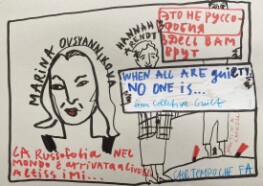 MARINA OVSYANNIKOVA
HANNAH ARENDT
ЭТО НЕ РУССО-
ФОБИЯ
ЗДЕСЬ ВАМ
ВРУТ
WHEN ALL ARE guilty
NO ONE IS...
from Collective Guilt
LA RUSSOFOBIA NEL
MONDO È ARRIVATA A LIVELLI
ALTISSIMI...
CHE TEMPO CHE FA